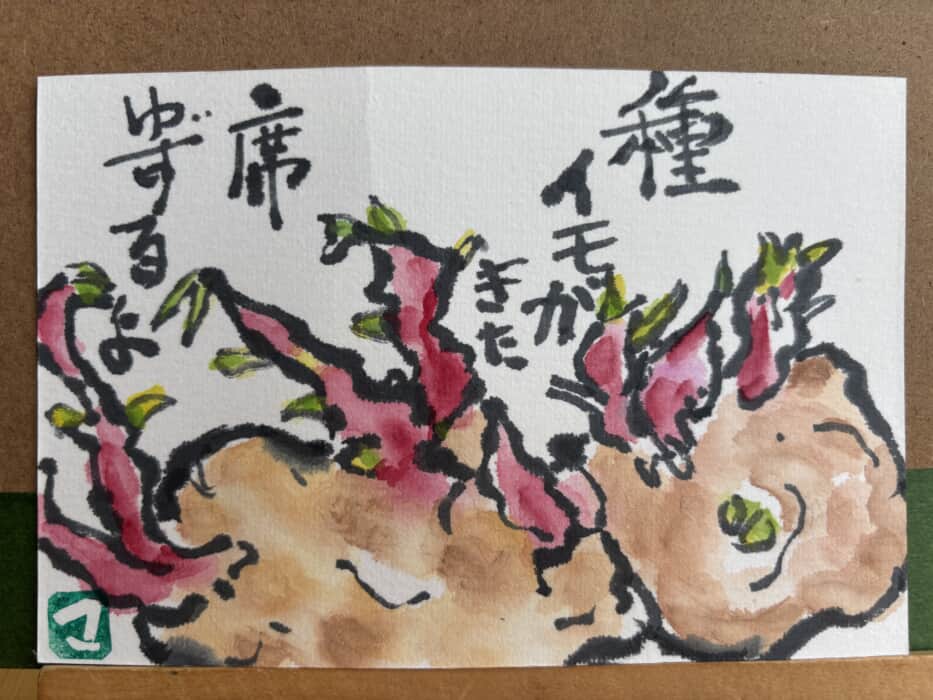 種
イモが
きた
席
ゆずるよ
マ